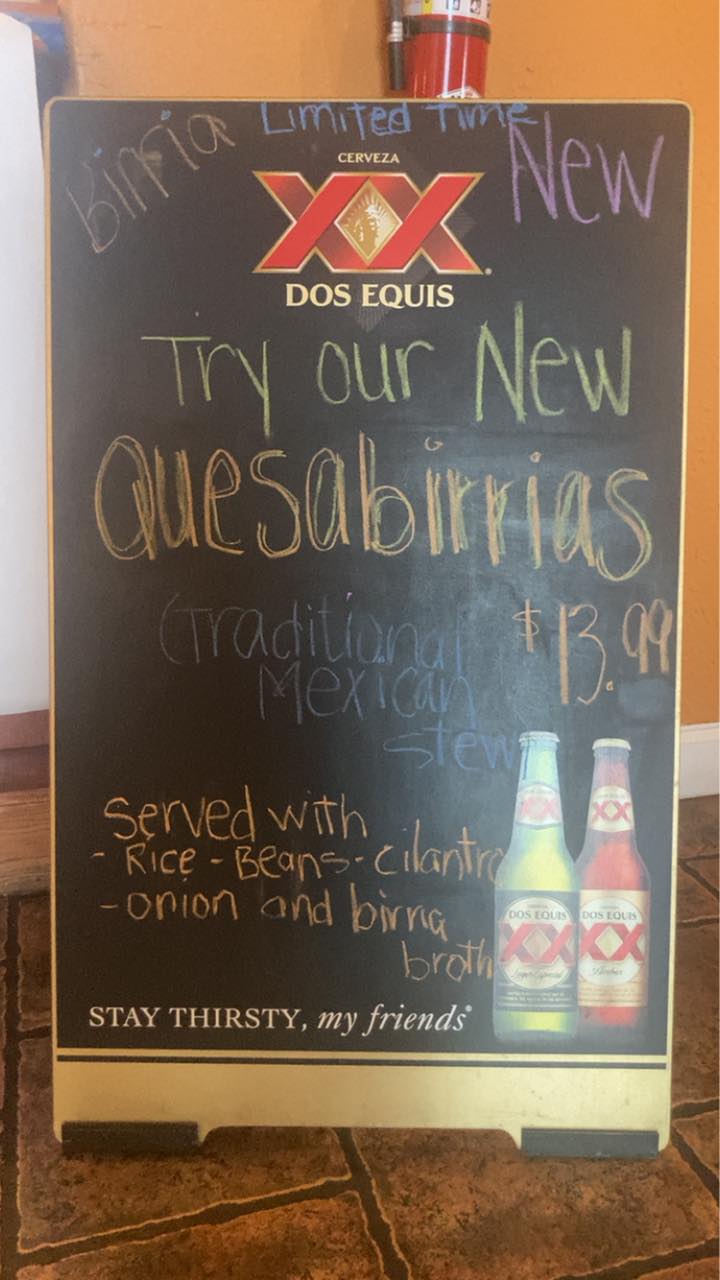 Limited Time
Birria
New
CERVEZA
XX
DOS EQUIS
Try our New
Quesabirrias
(Traditional
Mexican
stew
$13.99
Served with
- Rice - Beans - cilantro
- onion and birria
broth
XX
XX
DOS EQUIS
XX
DOS EQUIS
XX
STAY THIRSTY, my friends